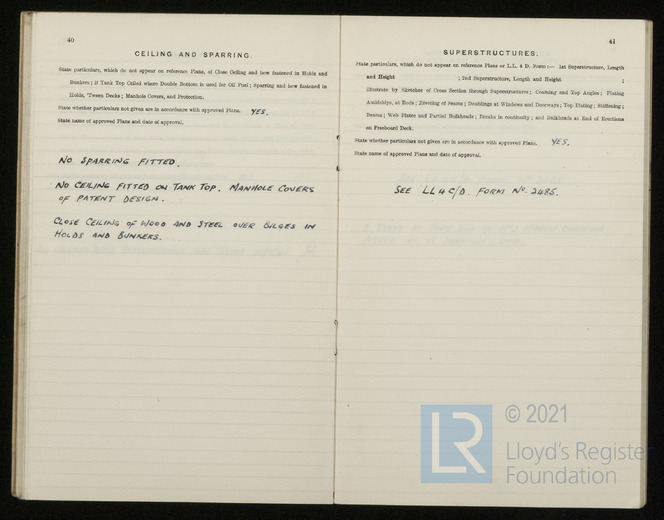 40
CEILING AND SPARRING.
State particulars, which do not appear on reference Plans, of Close Ceiling and how fastened in Holds and
Bunkers; if Tank Top Ceiled where Double Bottom is used for Oil Fuel; Sparring and how fastened in
Holds, 'Tween Decks; Manhole Covers, and Protection.
State whether particulars not given are in accordance with approved Plans. YES.
State name of approved Plans and date of approval.
NO SPARRING FITTED.
NO CEILING FITTED ON TANK TOP. MANHOLE COVERS
OF PATENT DESIGN.
CLOSE CEILING OF WOOD AND STEEL OVER BILGES IN
HOLDS AND BUNKERS.
41
SUPERSTRUCTURES.
State particulars, which do not appear on reference Plans or L.L. 4 D. Form:— 1st Superstructure, Length
and Height ; 2nd Superstructure, Length and Height ;
Illustrate by Sketches of Cross Section through Superstructures; Coaming and Top Angles; Plating
Amidships, at Ends; Riveting of Seams; Doublings at Windows and Doorways; Top Plating; Stiffening;
Beams; Web Plates and Partial Bulkheads; Breaks in continuity; and Bulkheads at End of Erections
on Freeboard Deck.
State whether particulars not given are in accordance with approved Plans. YES.
State name of approved Plans and date of approval.
SEE LL 4 C/D. FORM No. 2485.
LR
© 2021
Lloyd's Register
Foundation